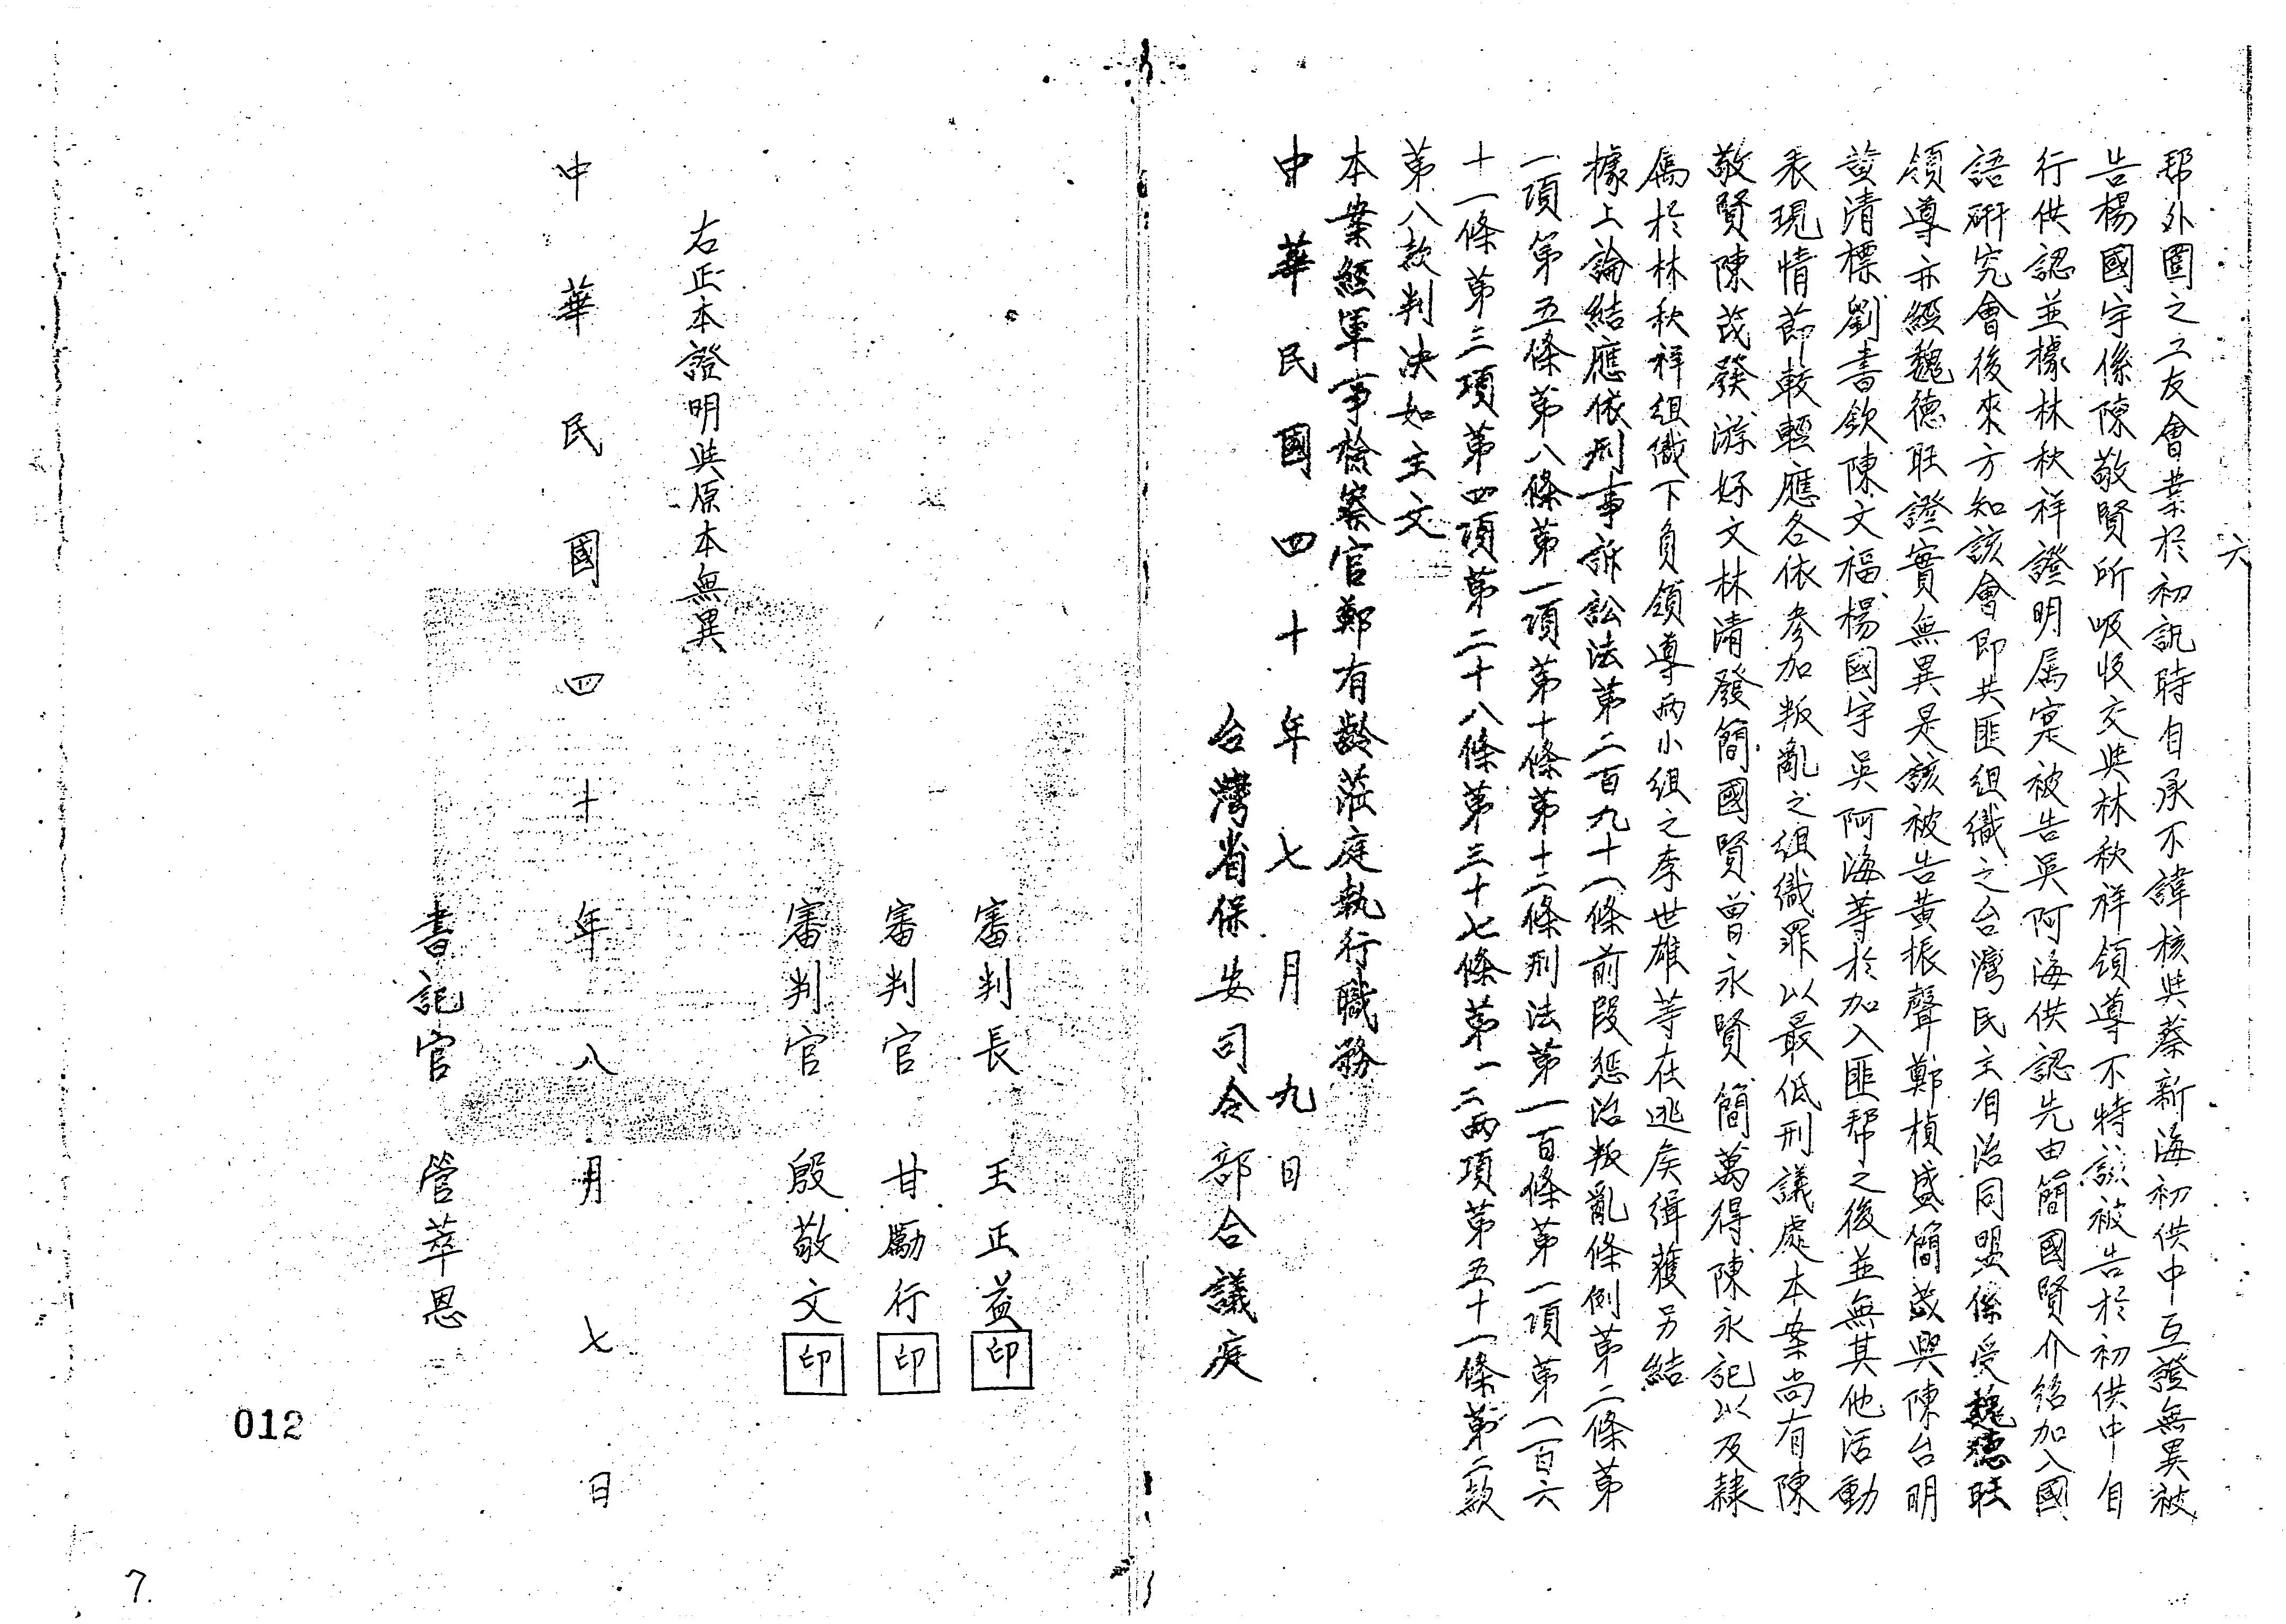 六
帮外圍之工友會業於初訊時自承不諱核與蔡新海初供中互證無異被
告楊國宇係陳敬賢所吸收交與林秋祥領導不特該被告於初供中自
行供認並據林秋祥證明属寔被告吳阿海供認先由簡國賢介紹加入國
語研究會後來方知該會即共匪組織之台灣民主自治同盟係受魏德旺
領導亦經魏德旺證實無異是該被告黃振聲鄭楨盛簡茂興陳台明
黃清標劉書欽陳文福楊國宇吳阿海等於加入匪帮之後並無其他活動
表現情節較輕應各依參加叛亂之組織罪以最低刑議處本案尚有陳
敬賢陳茂發游好文林清發簡國賢曾永賢簡萬得陳永記以及隸
属於林秋祥組織下負領導兩小組之李世雄等在逃矦緝獲另結
據上論結應依刑事訴訟法第二百九十一條前段懲治叛亂條例第二條第
一項第五條第八條第一項第十條第十二條刑法第一百條第一項第一百六
十一條第三項第四項第二十八條第三十七條第一二兩項第五十一條第二款
第八款判決如主文
本業經軍事檢察官鄭有齡蒞庭執行職務
中華民國四十年七月九日
台灣省保安司令部合議庭
審判長 王正益 印
審判官 甘勵行 印
審判官 殷敬文 印
右正本證明與原本無異
中華民國四十年八月七日
書記官 管萃恩
012
7